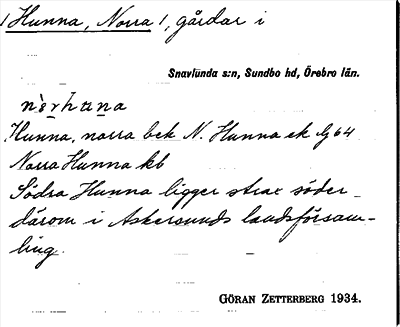 /Hunna, Norra/, gårdar i
Snavlunda s:n, Sundbo hd, Örebro län.
Hunna, norra bek N. Hunna ek
Norra Hunna kb
Södra Hunna ligger strax söder
därom i Askersunds landsförsam-
ling.
GÖRAN ZETTERBERG 1934.